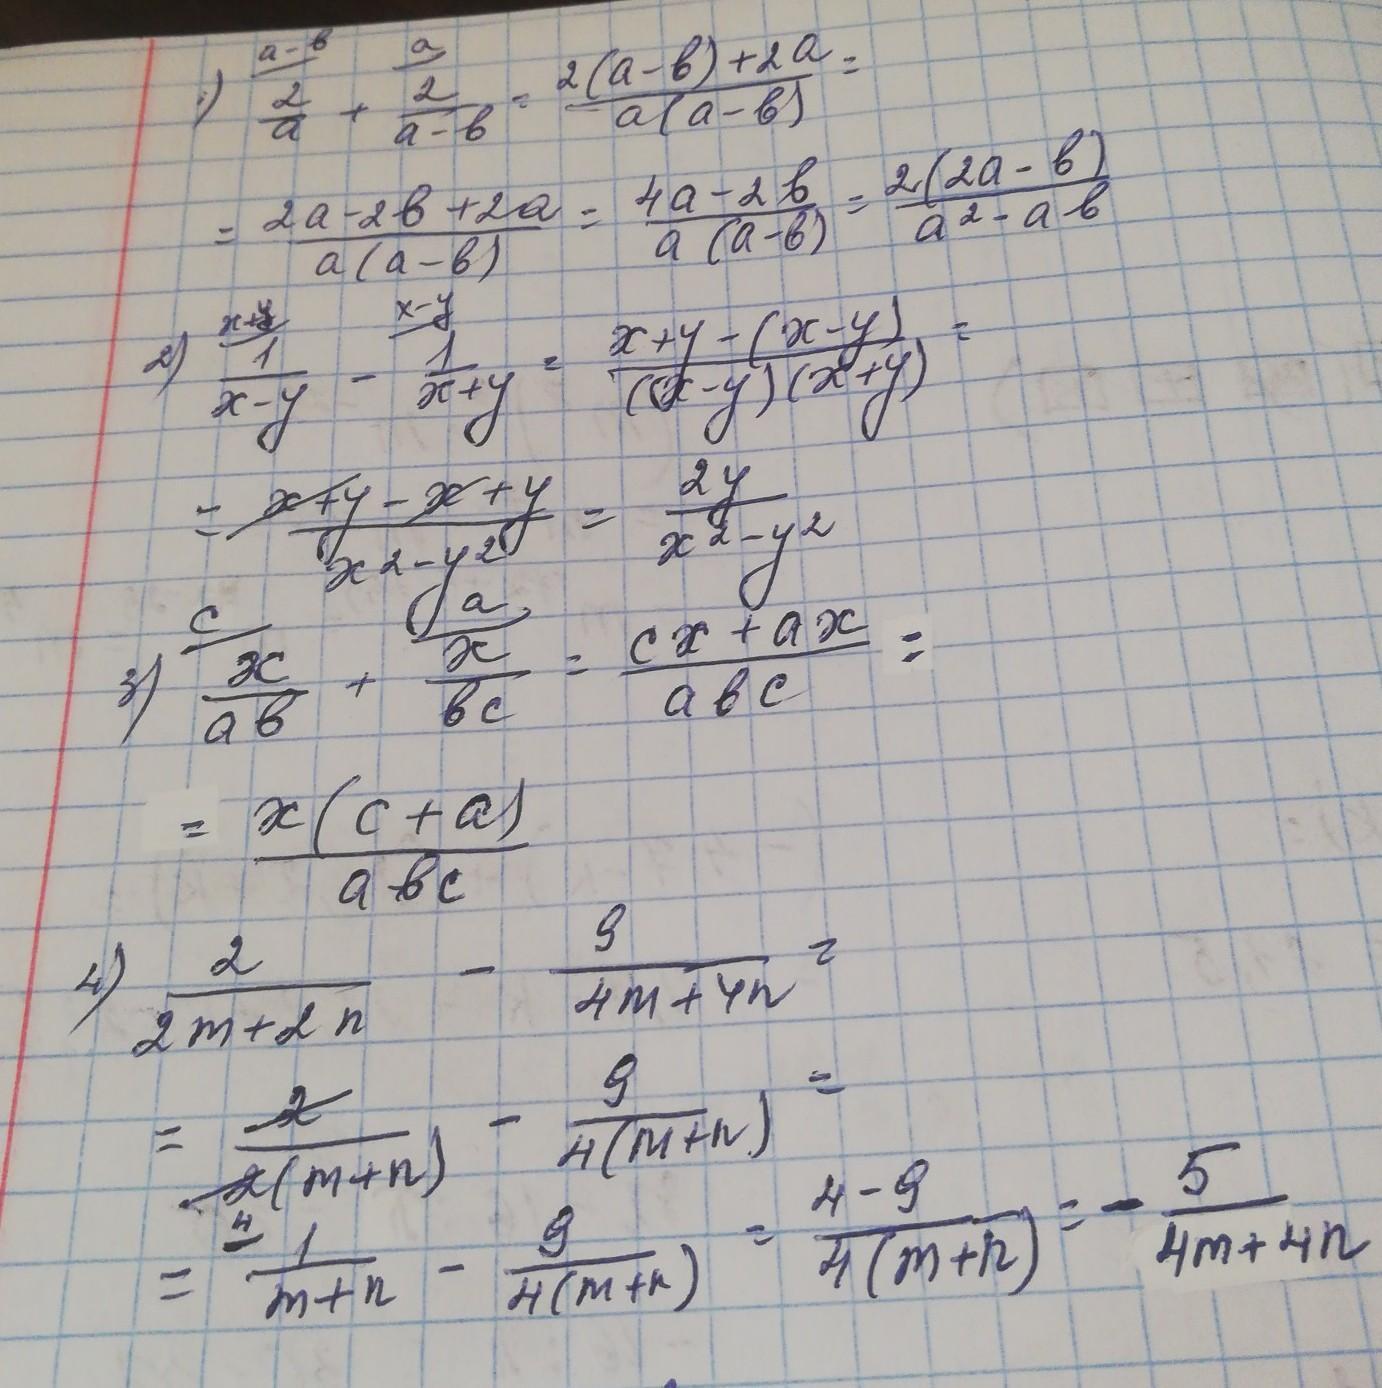 1) a-b/ 2/a + a/ 2/(a-b) = (2(a-b)+2a)/(a(a-b)) =
= (2a-2b+2a)/(a(a-b)) = (4a-2b)/(a(a-b)) = (2(2a-b))/(a²-ab)
2) x+y/ 1/(x-y) - x-y/ 1/(x+y) = (x+y-(x-y))/((x-y)(x+y)) =
= (x+y-x+y)/(x²-y²) = 2y/(x²-y²)
3) c/ x/(ab) + a/ x/(bc) = (cx+ax)/(abc) =
= (x(c+a))/(abc)
4) 2/(2m+2n) - 9/(4m+4n) =
= 2/(2(m+n)) - 9/(4(m+n)) =
= 4/ 1/(m+n) - 9/(4(m+n)) = (4-9)/(4(m+n)) = - 5/(4m+4n)